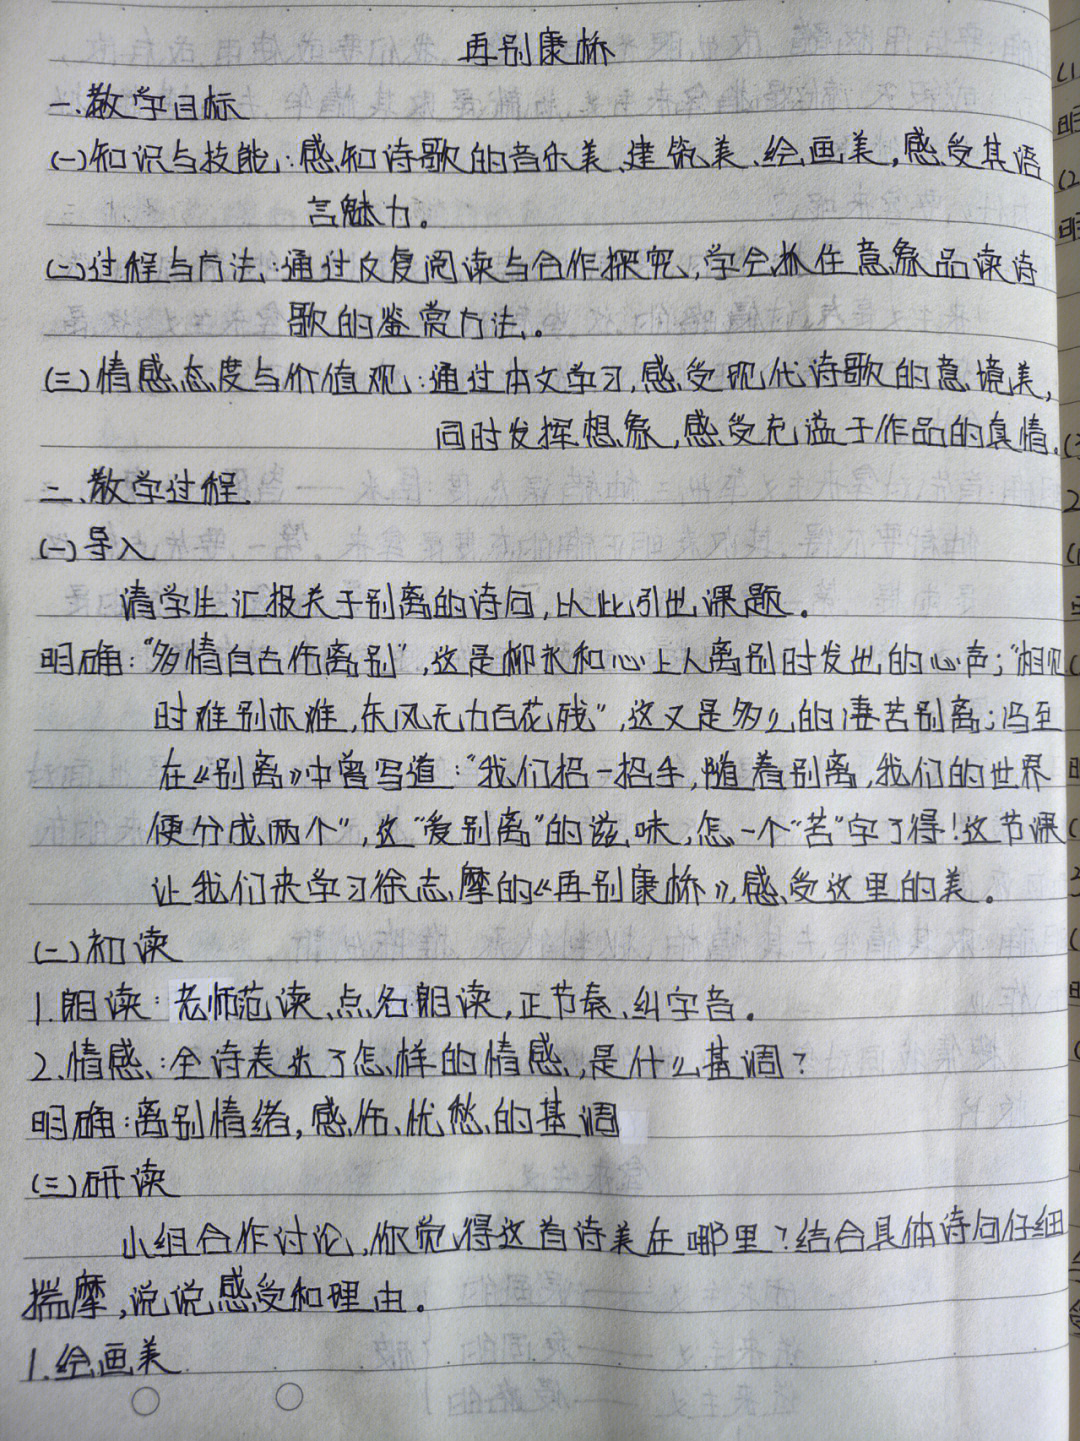 再别康桥
一.教学目标
(一)知识与技能:感知诗歌的音乐美、建筑美、绘画美,感受其语
言魅力。
(二)过程与方法:通过反复阅读与合作探究,学会抓住意象品读诗
歌的鉴赏方法。
(三)情感态度与价值观:通过本文学习,感受现代诗歌的意境美,
同时发挥想象,感受充溢于作品的真情.
二.教学过程.
(一)导入
请学生汇报关于别离的诗句,以此引出课题。
明确:“多情自古伤离别”,这是柳永和心上人离别时发出的心声;“相见
时难别亦难,东风无力百花残”,这又是多么的凄苦别离;冯至
在《别离》中曾写道:“我们招一招手,随着别离,我们的世界
便分成两个”,这“爱别离”的滋味,怎一个“苦”字了得!这节课
让我们来学习徐志摩的《再别康桥》,感受这里的美。
(二)初读
1.朗读:老师范读、点名朗读,正节奏、纠字音。
2.情感:全诗表达了怎样的情感,是什么基调?
明确:离别情绪,感伤、忧愁的基调
(三)研读
小组合作讨论,你觉得这首诗美在哪里?结合具体诗句仔细
揣摩,说说感受和理由。
1.绘画美